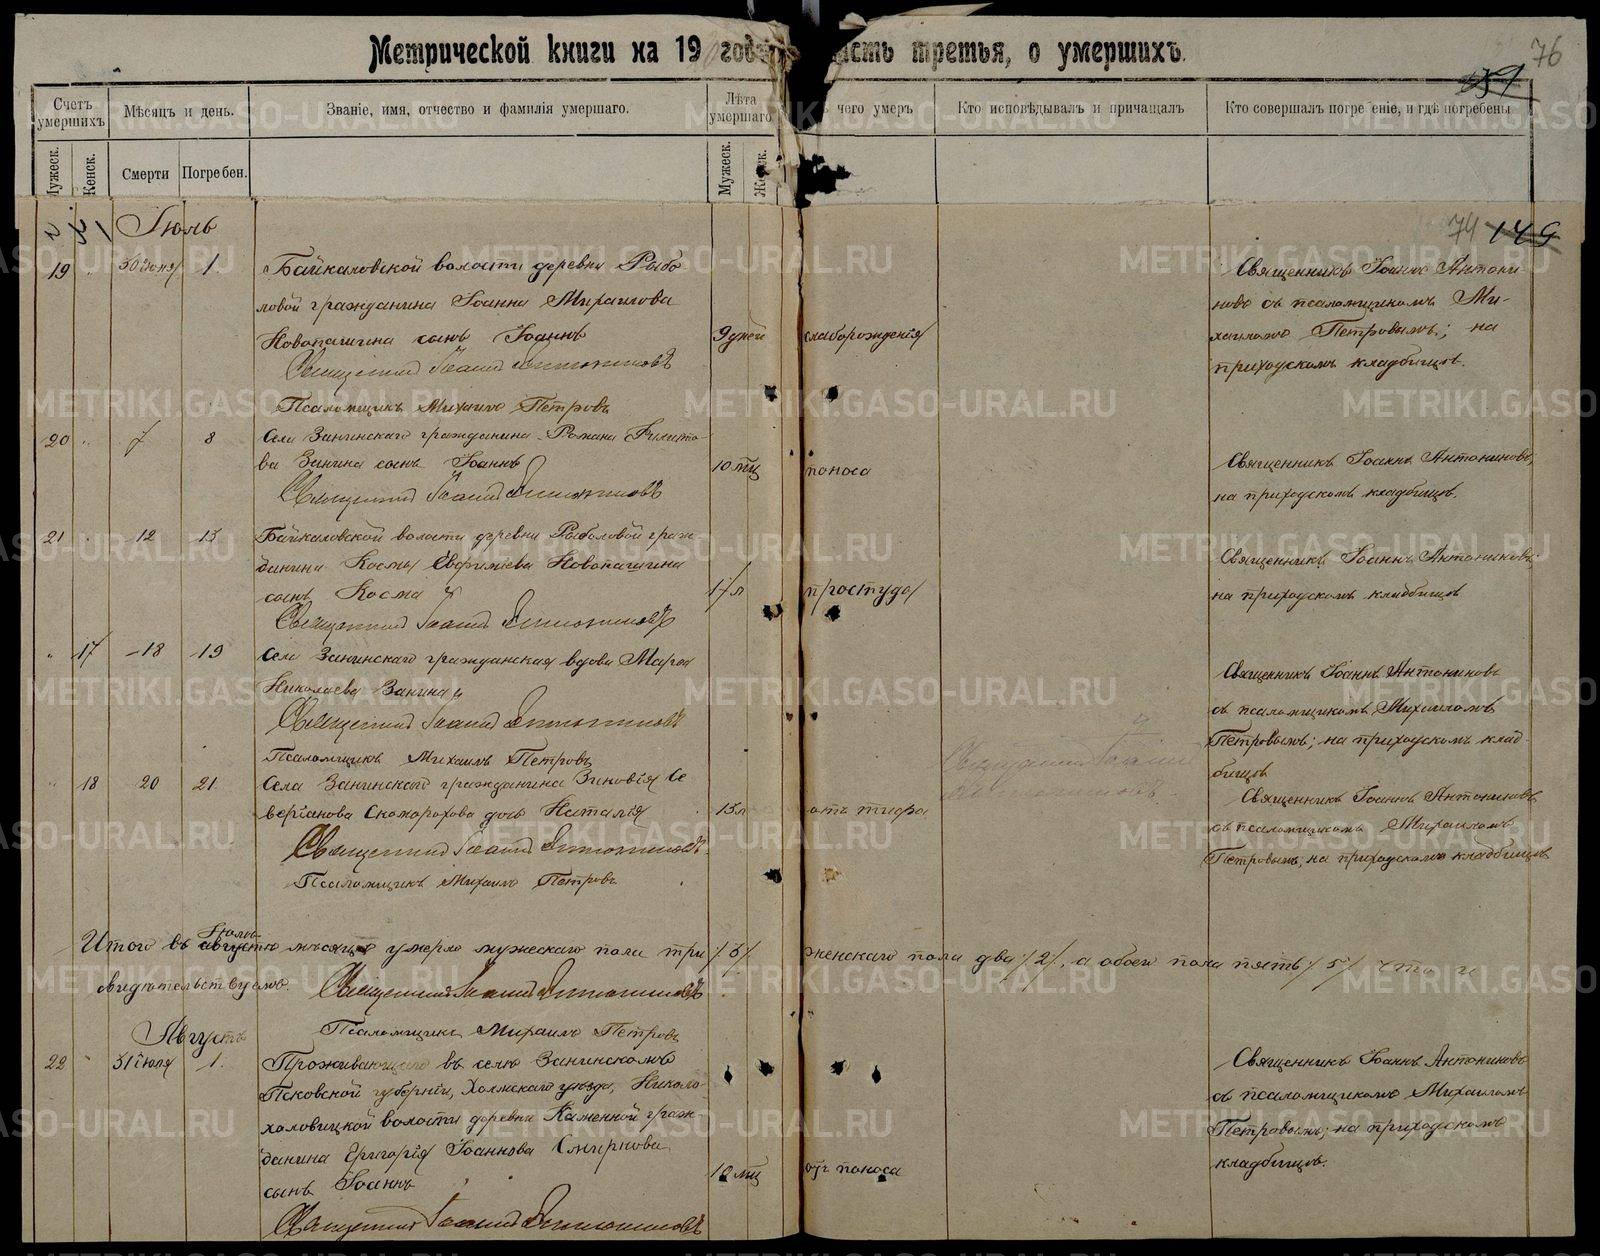 Метрической книги на 19 годъ часть третья, о умершихъ.
76
Счетъ умершихъ.
Мѣсяцъ и день.
Званіе, имя, отчество и фамилія умершаго.
Лѣта умершаго
чего умеръ
Кто исповѣдывалъ и причащалъ
Кто совершалъ погребеніе, и гдѣ погребены
Мужеск.
Женск.
Смерти
Погребен.
Мужеск.
Женск.
74 149
Іюль
19 30 іюня 1. Байкаловской волости деревни Рыбо
ловой гражданина Іоанна Михаилова
Новопашина сынъ Іоаннъ
9 дней
слаборожденія
Священникъ Іоаннъ Антони
новъ съ псаломщикомъ Ми-
хаиломъ Петровымъ; на
приходскомъ кладбищѣ.
Священникъ Іоаннъ Антониновъ
Псаломщикъ Михаилъ Петровъ
20 7 8 Села Занинскаго гражданина Романа
ва Занина сынъ Іоаннъ
10 мц
поноса
Священникъ Іоаннъ Антониновъ,
на приходскомъ кладбищѣ.
Священникъ Іоаннъ Антониновъ
21 12 13 Байкаловской волости деревни Рыболовой граж-
данина Космы Евфиміева Новопашина
сынъ Косма
17 л
простуда
Священникъ Іоаннъ Антониновъ
на приходскомъ кладбищѣ
Священникъ Іоаннъ Антониновъ
17 18 19 Села Занинскаго гражданская вдова Марѳа
Николаева Занина
Священникъ Іоаннъ Антониновъ
съ псаломщикомъ Михаиломъ
Петровымъ; на приходскомъ клад-
бищѣ
Священникъ Іоаннъ Антониновъ
Псаломщикъ Михаилъ Петровъ
Священникъ Іоаннъ
Антониновъ.
18 20 21 Села Занинскаго гражданина Зиновія Се
веріанова Скоморохова дочь Наталія
15 л
отъ тифа
Священникъ Іоаннъ Антониновъ
съ псаломщикомъ Михаиломъ
Петровымъ, на приходскомъ кладбищѣ
Священникъ Іоаннъ Антониновъ
Псаломщикъ Михаилъ Петровъ
Іюлѣ
Итого въ августѣ мѣсяцѣ умерло мужескаго пола три /3/ женскаго пола два /2/, а обоего пола пять /5/ что и
свидѣтельствуемъ. Священникъ Іоаннъ Антониновъ
Псаломщикъ Михаилъ Петровъ
Августъ
22 31 іюля 1. Проживающаго въ селѣ Занинскомъ
Псковской губерніи, Холмскаго уѣзда,
волости деревни Каменной граж-
данина Григорія Іоаннова Смирнова
сынъ Іоаннъ
10 мц
отъ поноса
Священникъ Іоаннъ Антониновъ
съ псаломщикомъ Михаиломъ
Петровымъ; на приходскомъ
кладбищѣ.
Священникъ Іоаннъ Антониновъ
METRIKI.GASO-URAL.RU